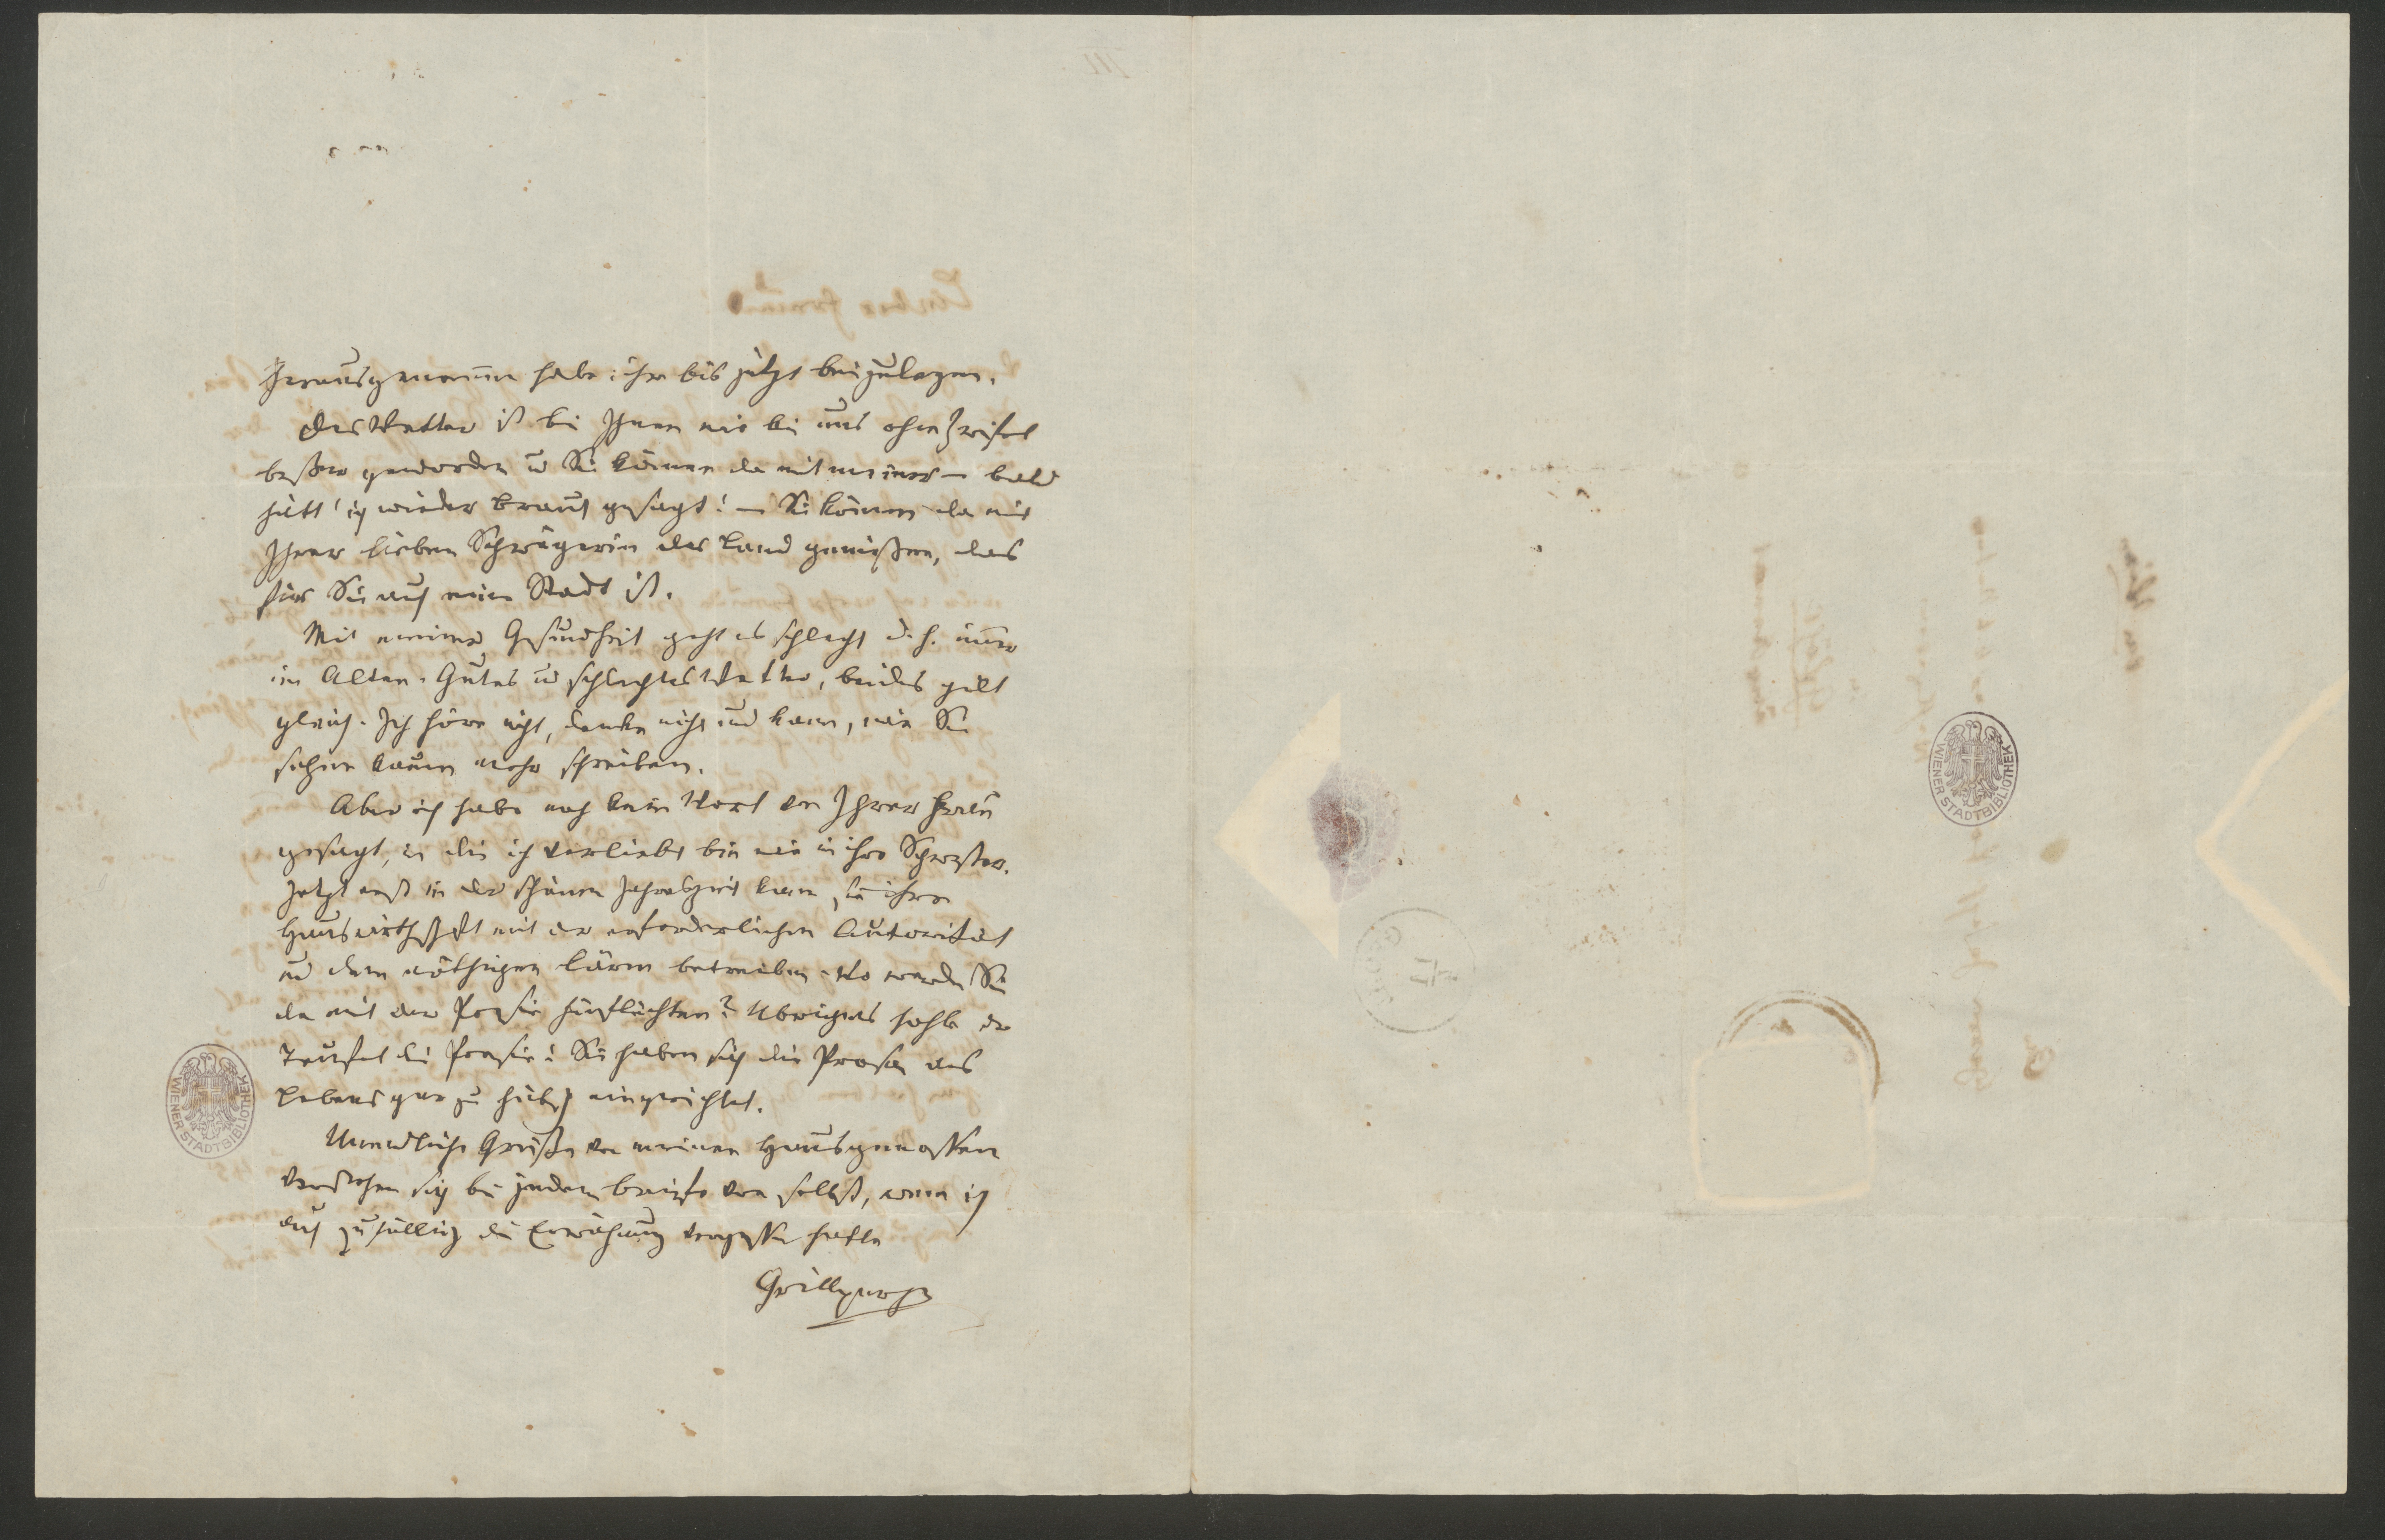 herausgenommen habe ihr bis jetzt beizulegen.
Das Wetter ist bei Ihnen wie bei uns ohne Zweifel
beßer geworden u Sie können da mit meiner – bald
hätt' ich wieder Braut gesagt! – Sie können da mit
Ihrer lieben Schwägerin das Land genießen, das
für Sie auch eine Stadt ist.
Mit meiner Gesundheit geht es schlecht d. h. immer
im Alten. Gutes u schlechtes Wetter, beides gilt
gleich. Ich höre nicht, denke nicht und kann, wie Sie
sehen kaum mehr schreiben.
Aber ich habe noch kein Wort von Ihrer Frau
gesagt, in die ich verliebt bin wie in ihre Schwester.
Jetzt erst in der schönen Jahrszeit kann sie ihre
Hauswirthschaft mit der erforderlichen Autorität
und dem nöthigen Lärm betreiben. Wo werden Sie
da mit der Poesie hinflüchten? Übrigens hohle der
Teufel die Poesie! Sie haben sich die Prosa des
Lebens gar zu hübsch eingerichtet.
Unendliche Grüße von meinen Hausgenossen
verstehen sich bei jedem Briefe von selbst, wenn ich
auch zufällig die Erwähnung vergessen hätte
Grillparzer
WIENER STADTBIBLIOTHEK
WIENER STADTBIBLIOTHEK